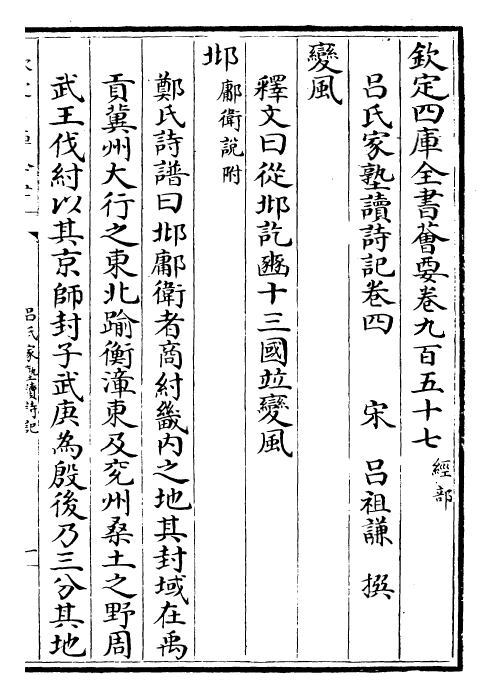 欽定四庫全書薈要卷九百五十七 經部
吕氏家塾讀詩記卷四 宋 吕祖謙 撰
變風
釋文曰從邶訖豳十三國並變風
邶 鄘衛說附
鄭氏詩譜曰邶鄘衛者商紂畿内之地其封域在禹
貢冀州大行之東北踰衡漳東及兖州桑土之野周
武王伐紂以其京師封子武庚為殷後乃三分其地
吕氏家塾讀詩記 一